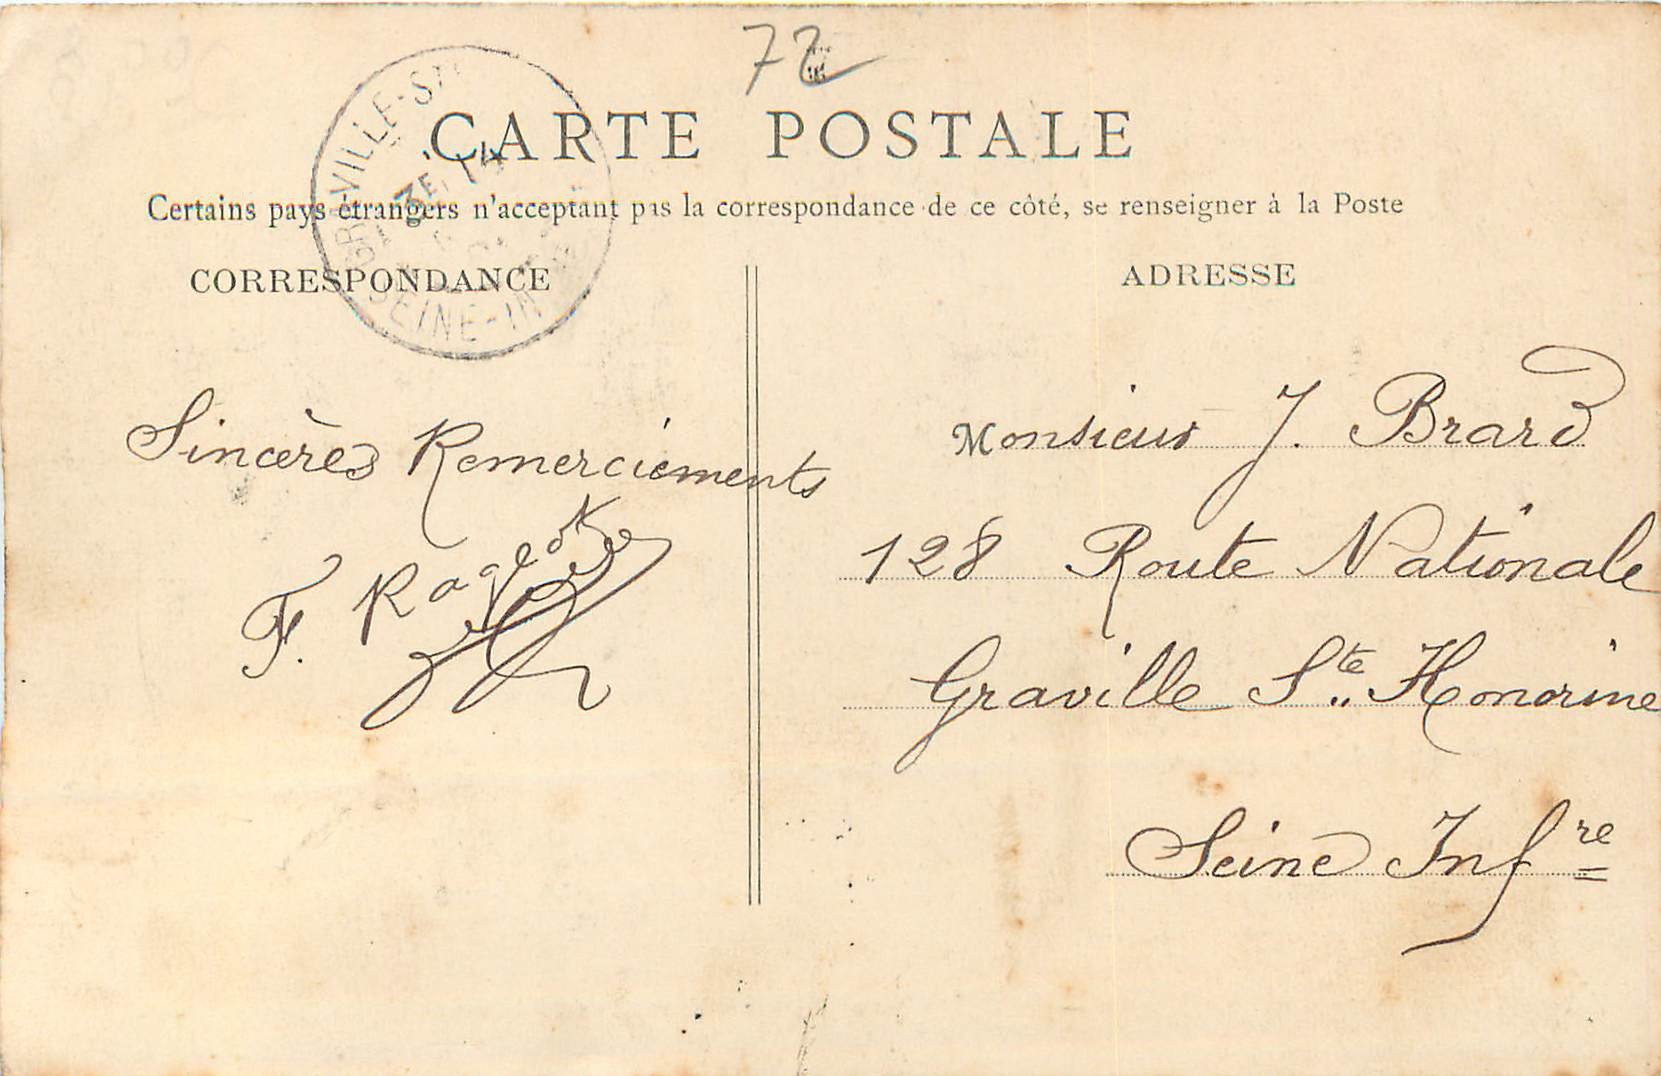 72
CARTE POSTALE
Certains pays étrangers n'acceptant pas la correspondance de ce côté, se renseigner à la Poste
CORRESPONDANCE
ADRESSE
GRAVILLE-STE
3E
14
SEINE-INF
Sincères Remerciements
F. Rageot
Monsieur J. Brard
128 Route Nationale
Graville Ste Honorine
Seine Infre